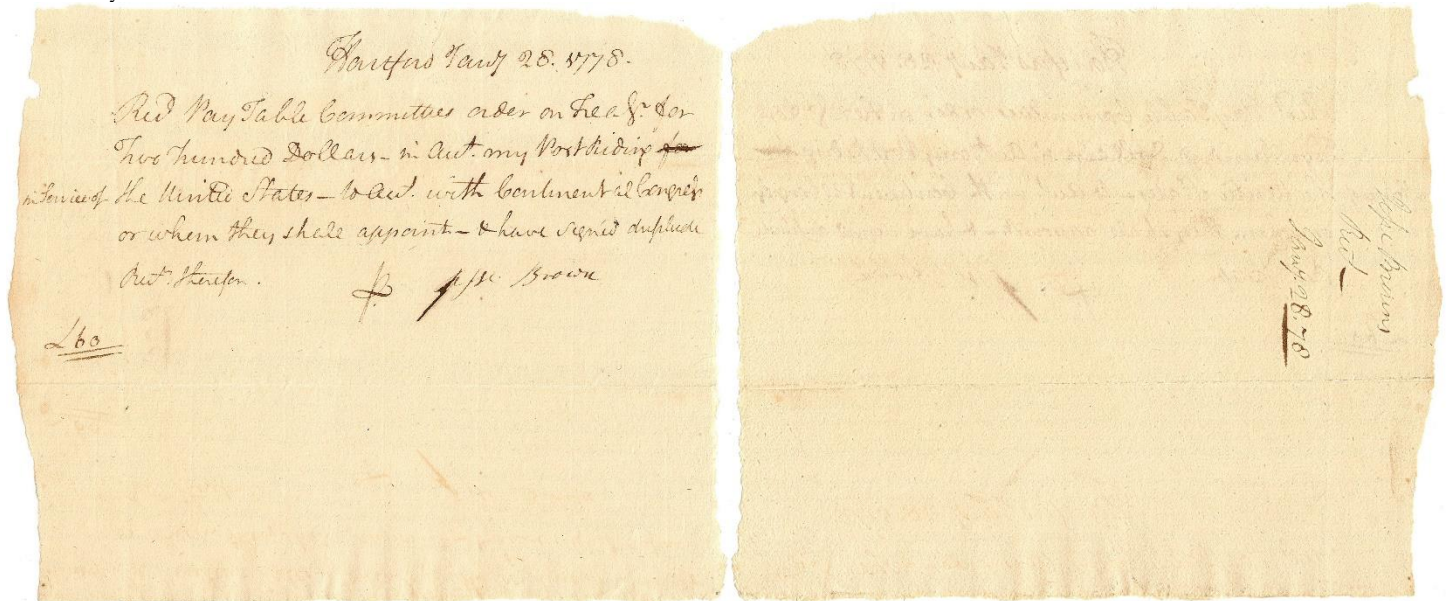 Hartford Jany 28. 1778.
Recd Pay Table Committees order on Treasr. for
Two hundred Dollars – in Acct. my Post Riding for
in Service of the United States – to Acct. with Continental Congress
or whom they shall appoint – & have signed duplicate
Rect. therefor.
Jesse Brown
£60
Jesse Browns
Rect
Jany 28. 78